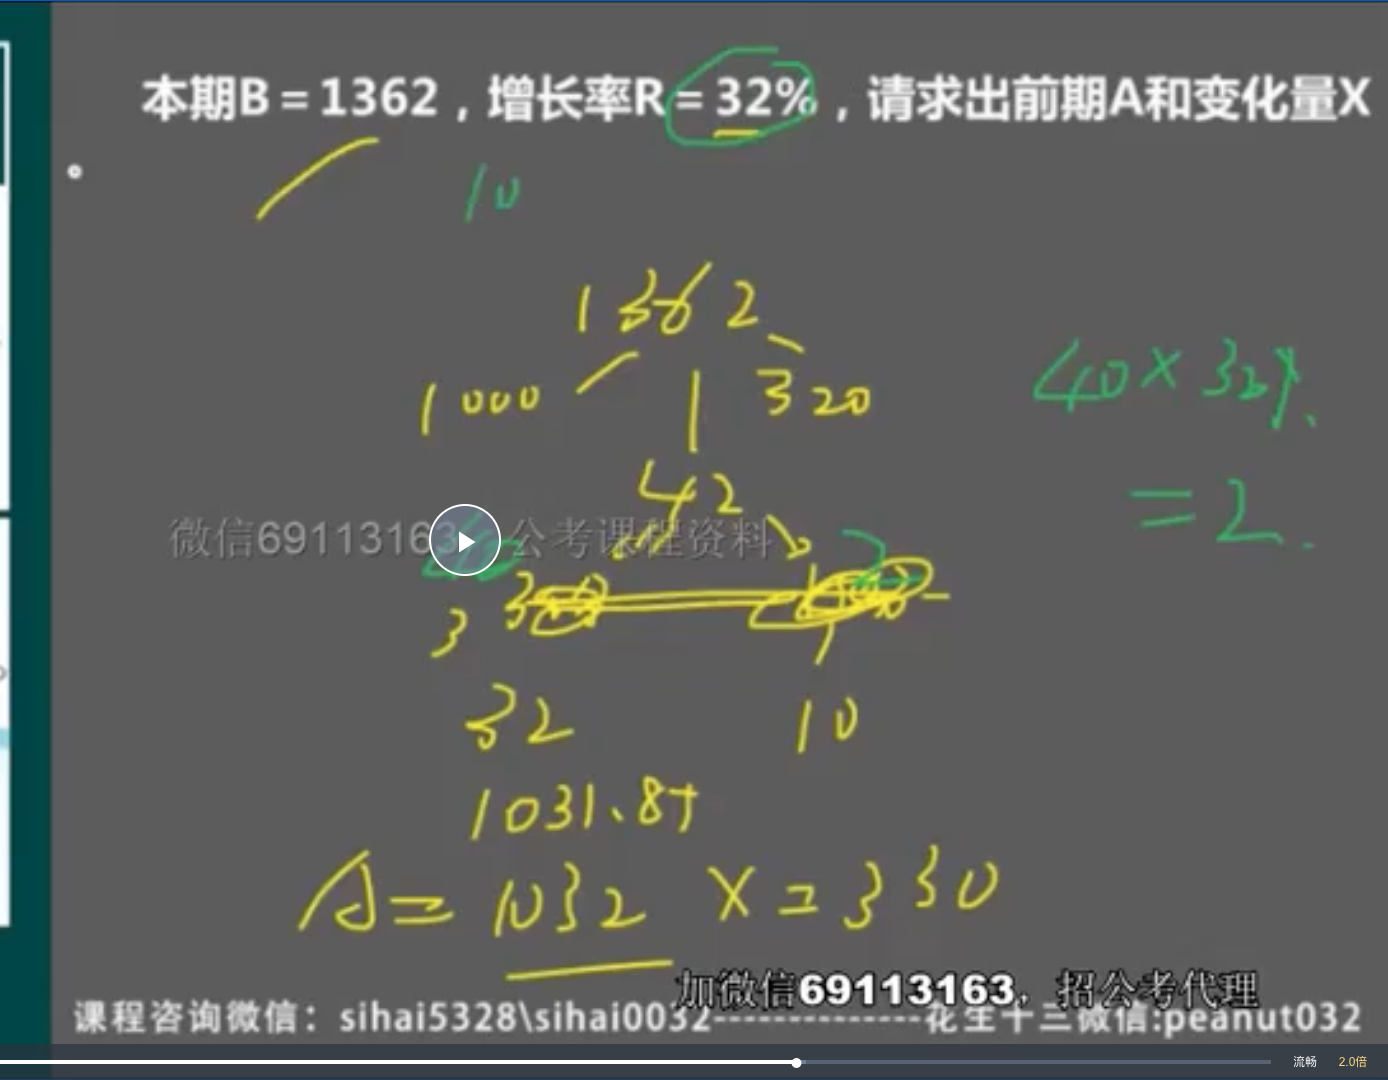 本期B=1362，增长率R=32%，请求出前期A和变化量X
。
10
1362
1000
320
40×32%
42
=2
微信6911316 公考课程资料
2
3
32
10
1031.8+
A=1032 X=330
加微信69113163，招公考代理
课程咨询微信：sihai5328\sihai0032--------------花生十三微信:peanut032
流畅 2.0倍